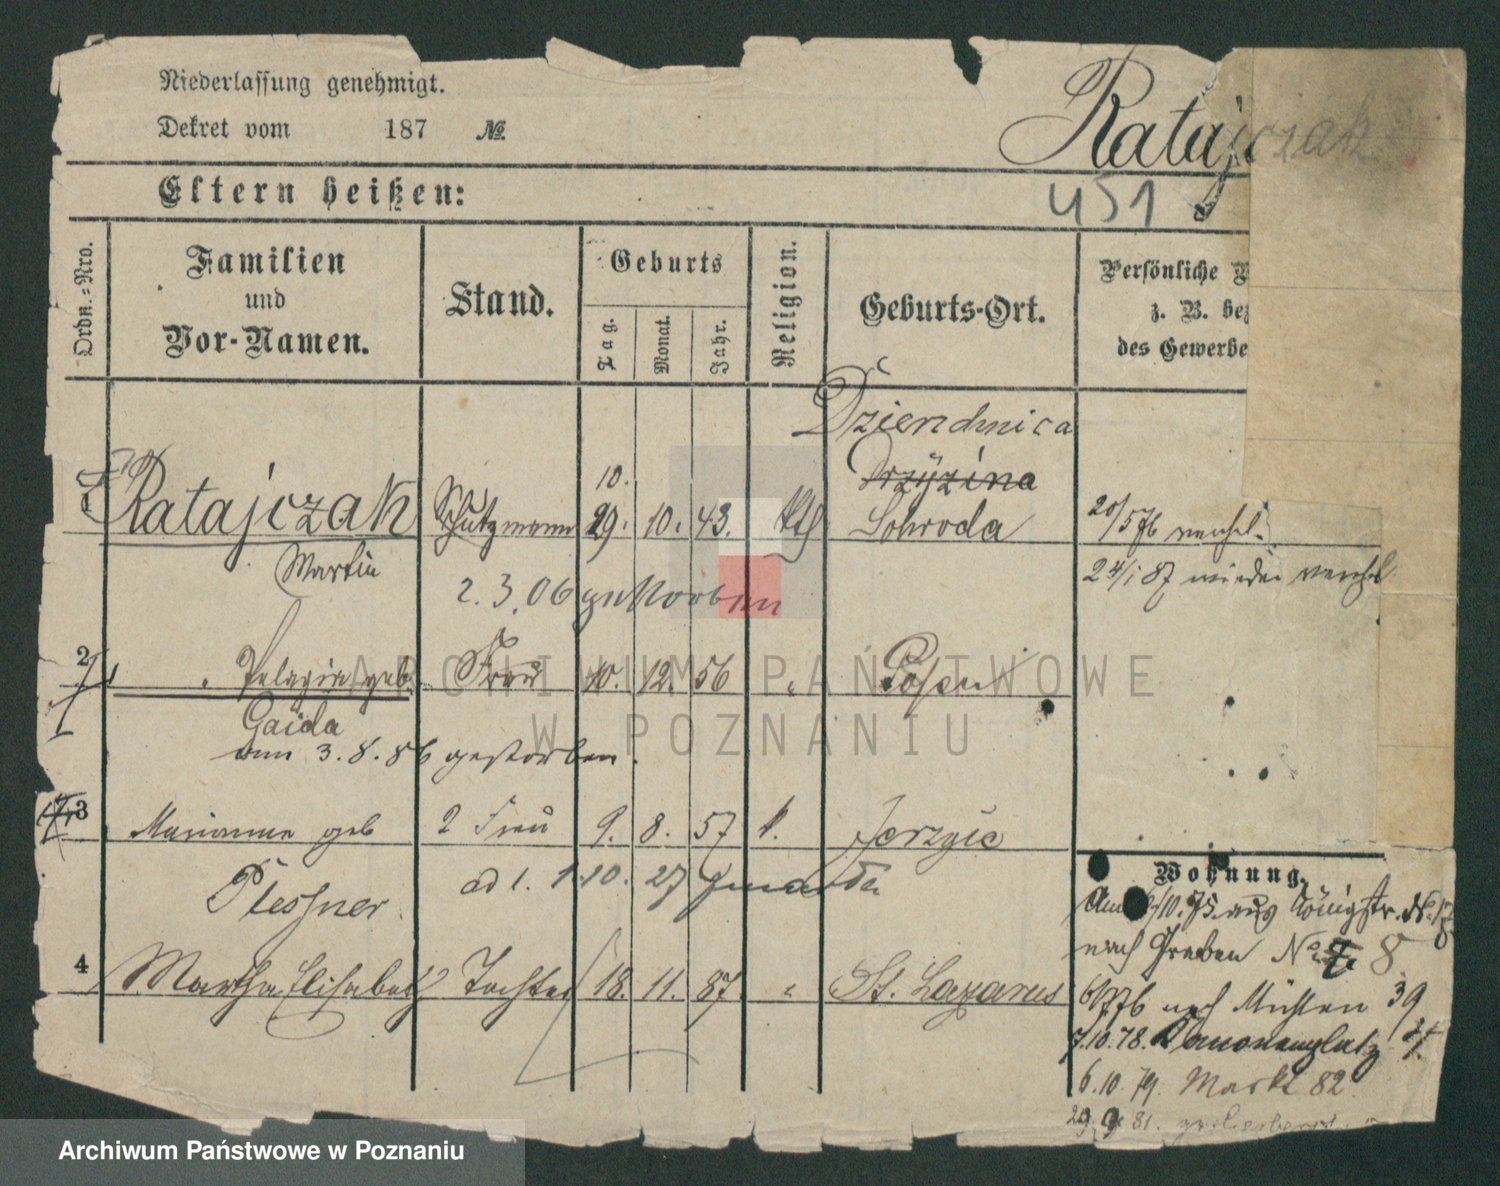 Niederlassung genehmigt.
Dekret vom 187 №
Ratajczak
451
Eltern heißen:
Ordn.-Nro.
Familien
und
Vor-Namen.
Stand.
Geburts
Tag.
Monat.
Jahr.
Religion.
Geburts-Ort.
Persönliche
z. B.
des Gewerbe
1 Ratajczak Schutzmann 10. 29. 10. 43. kth
Drzÿzina
Schroda
Martin
2. 3. 06 gestorben
20/5 76 verehel.
24/1 87 wieder verehel.
2 " Pelagia geb. Frau 10. 12. 56 " Posen
Gaida
am 3. 8. 86 gestorben.
3 Marianne geb 2 Frau 9. 8. 57 Jerzyce
Plessner
ad 1. 1.10. 27
4 Martha Elisabeth Tochter 18. 11. 87 " St. Lazarus
Wohnung.
Am /10. 75. aus Königstr. №. 17
nach Graben № 8
76 nach Mühlen 39
7.10.78. Kanonenplatz
6.10.79. Markt 82
29. 9. 81.
ARCHIWUM PAŃSTWOWE
W POZNANIU
Archiwum Państwowe w Poznaniu